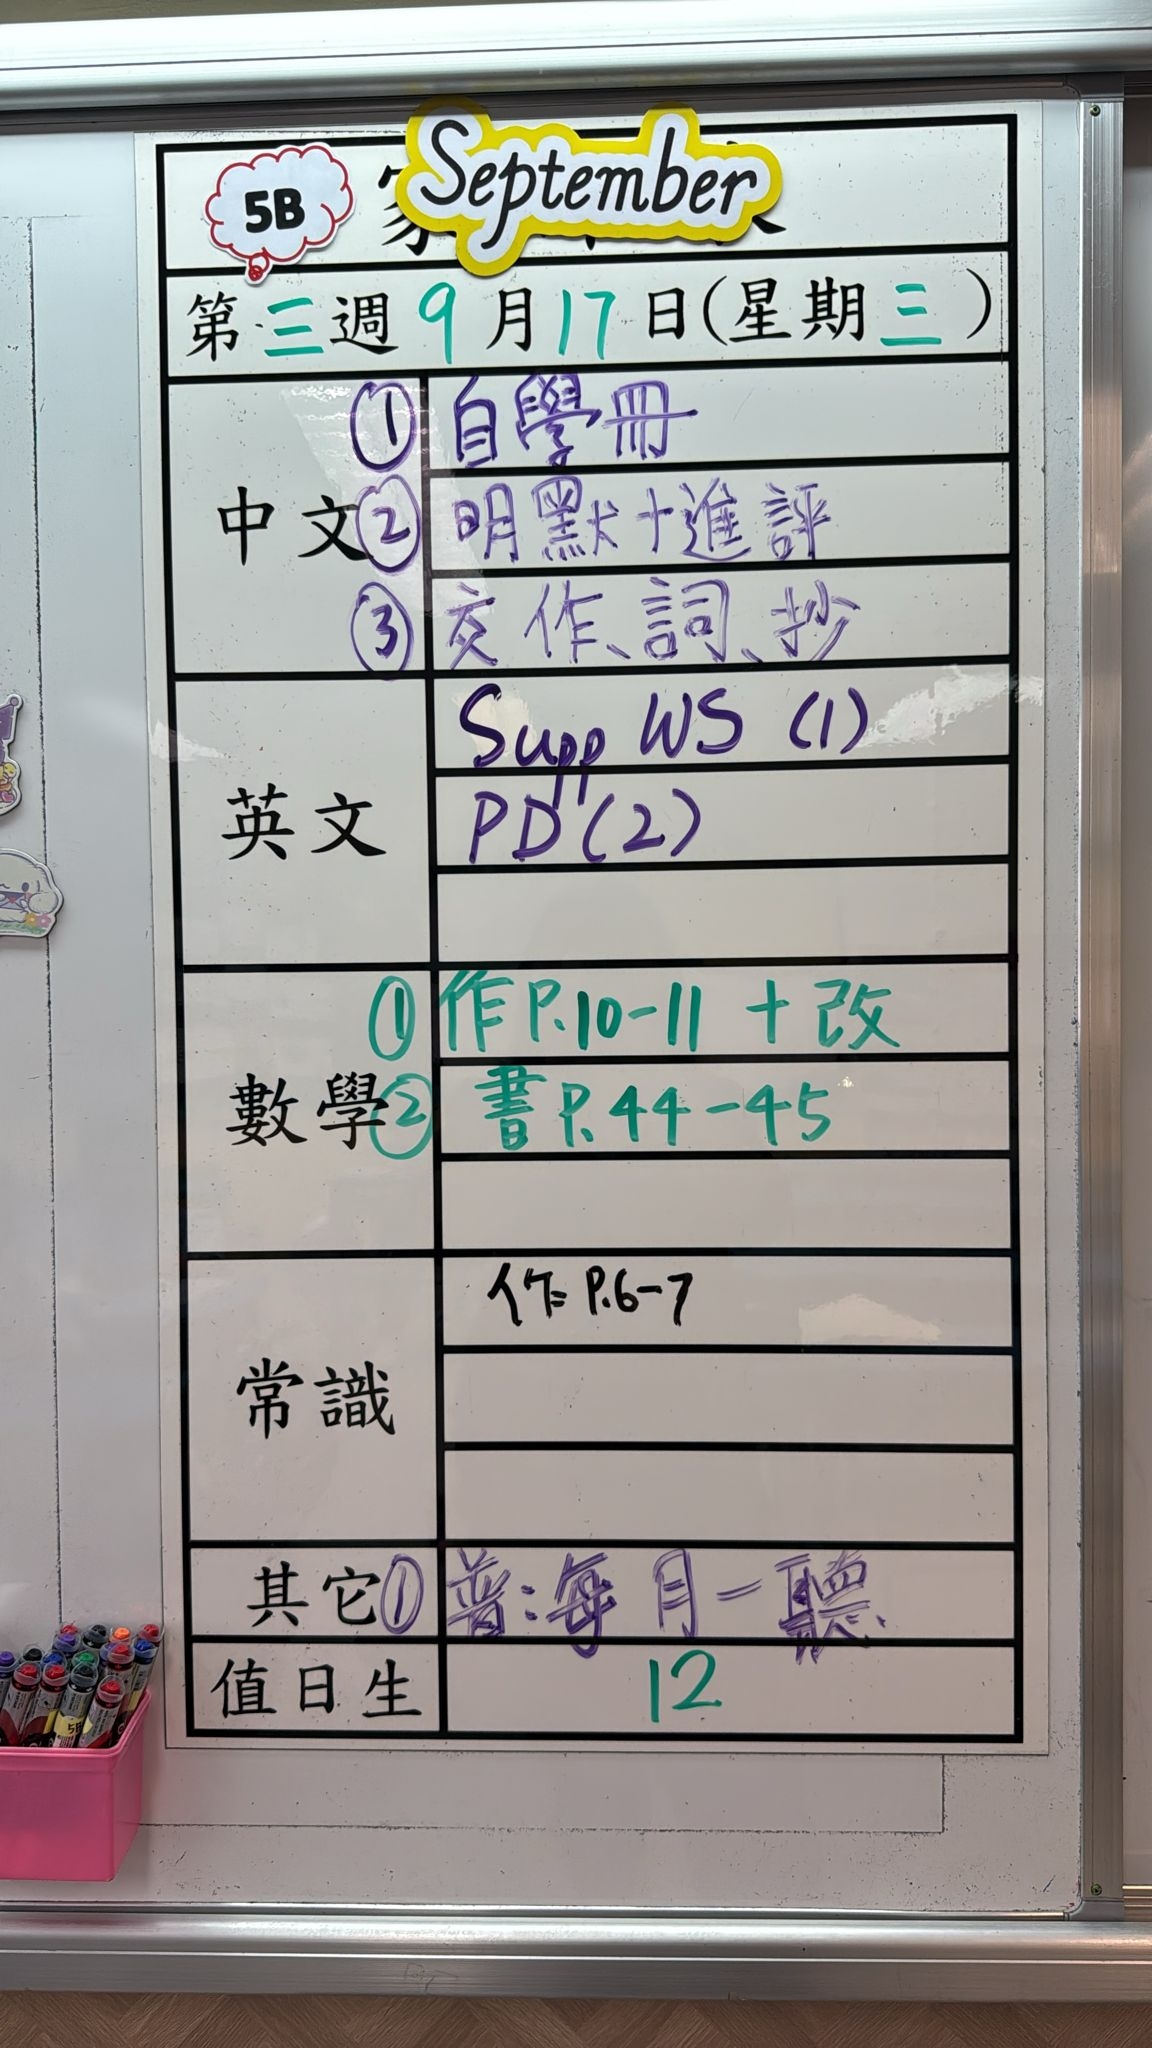 5B
September
第三週9月17日(星期三)
中文
① 自學冊
② 明默+進評
③ 交作、詞、抄
英文
Supp WS (1)
PD (2)
數學
① 作P.10-11 + 改
② 書P.44-45
常識
作= P.6-7
其它
① 普:每月一聽
值日生
12